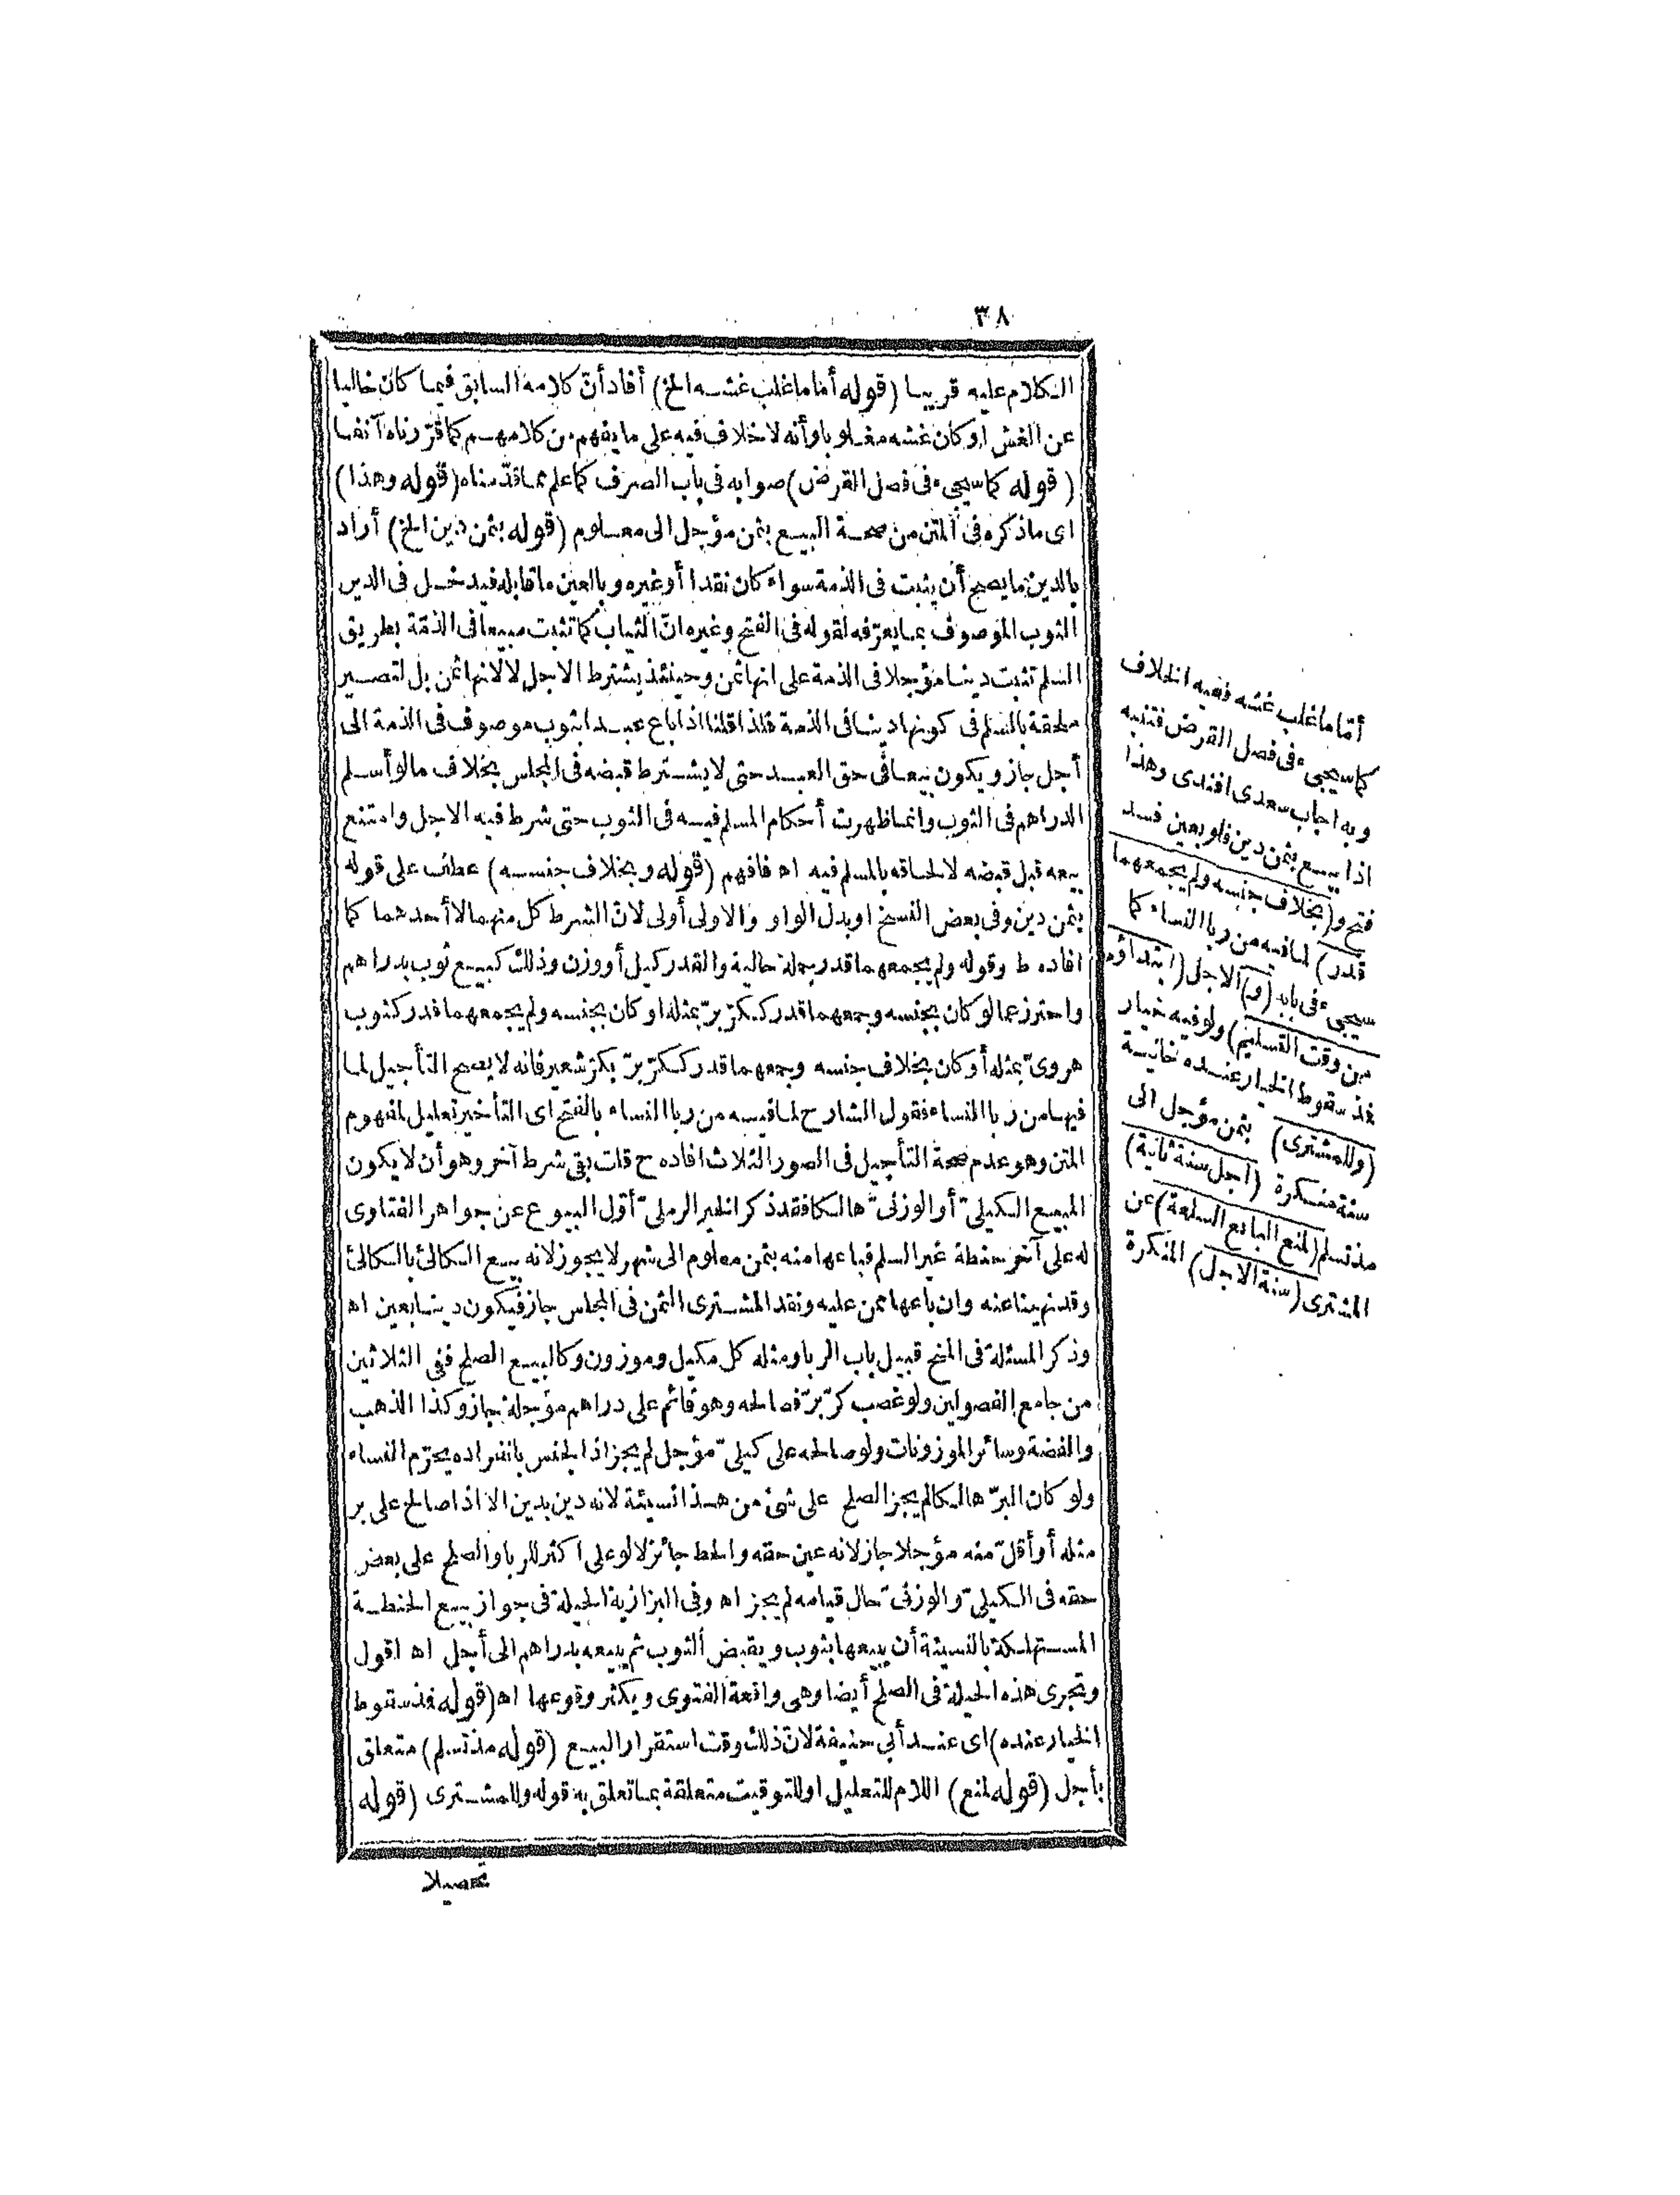 ٣٨
الكلام عليه قريبا (قوله أما ما غلب غشه الخ) أفاد أنّ كلامه السابق فيما كان خاليا
عن الغش او كان غشه مغلوبا وأنه لا خلاف فيه على ما يفهم من كلامهم كما قرّرناه آنفا
(قوله كما سيجىء فى فصل القرض) صوابه فى باب الصرف كما علم مما قدّمناه (قوله وهذا)
اى ما ذكره فى المتن من صحة البيع بثمن مؤجل الى معلوم (قوله بثمن دين الخ) أراد
بالدين ما يصح أن يثبت فى الذمة سواء كان نقدا أو غيره وبالعين ما قابله فيدخل فى الدين
الثوب الموصوف بما يعرّفه لقوله فى الفتح وغيره انّ الثياب كما تثبت مبيعا فى الذمّة بطريق
السلم تثبت دينا مؤجلا فى الذمة على انها ثمن وحينئذ يشترط الاجل لا لانها ثمن بل لتصير
ملحقة بالسلم فى كونها دينا فى الذمة فلذا قلنا اذا باع عبدا بثوب موصوف فى الذمة الى
أجل جاز ويكون بيعا فى حق العبد حتى لا يشترط قبضه فى المجلس بخلاف ما لو أسلم
الدراهم فى الثوب وانما ظهرت أحكام المسلم فيه فى الثوب حتى شرط فيه الاجل وامتنع
بيعه قبل قبضه لالحاقه بالمسلم فيه اه فافهم (قوله وبخلاف جنسه) عطف على قوله
بثمن دين وفى بعض النسخ او بدل الواو والاولى أولى لانّ الشرط كل منهما لا أحدهما كما
افاده ط وقوله ولم يجمعهما قدر جملة حالية والقدر كيل أو وزن وذلك كبيع ثوب بدراهم
واحترز عما لو كان بجنسه وجمعهما قدر ككرّ برّ بمثله او كان بجنسه ولم يجمعهما قدر كثوب
هروىّ بمثله أو كان بخلاف جنسه وجمعهما قدر ككرّ برّ بكرّ شعير فانه لا يصح التأجيل لما
فيها من ربا النساء فقول الشارح لما فيه من ربا النساء بالفتح اى التأخير تعليل لمفهوم
المتن وهو عدم صحة التأجيل فى الصور الثلاث افاده ح قلت بقى شرط آخر وهو أن لا يكون
المبيع الكيلىّ أو الوزنىّ هالكا فقد ذكر الخير الرملىّ أوّل البيوع عن جواهر الفتاوى
له على آخر حنطة غير السلم فباعها منه بثمن معلوم الى شهر لا يجوز لانه بيع الكالئ بالكالئ
وقد نهينا عنه وان باعها ممن عليه ونقد المشترى الثمن فى المجلس جاز فيكون دينا بعين اه
وذكر المسئلة فى المنح قبيل باب الربا ومثله كل مكيل وموزون وكالبيع الصلح ففى الثلاثين
من جامع الفصولين ولو غصب كرّ برّ فصالحه وهو قائم على دراهم مؤجلة جاز وكذا الذهب
والفضة وسائر الموزونات ولو صالحه على كيلىّ مؤجل لم يجز اذ الجنس بانفراده يحرّم النساء
ولو كان البرّ هالكا لم يجز الصلح على شئ من هذا نسيئة لانه دين بدين الا اذا صالح على بر
مثله أو أقلّ منه مؤجلا جاز لانه عين حقه والحط جائز لا لو على اكثر للربا والصلح على بعض
حقه فى الكيلىّ والوزنىّ حال قيامه لم يجز اه وفى البزازية الحيلة فى جواز بيع الحنطة
المستهلكة بالنسيئة أن يبيعها بثوب ويقبض الثوب ثم يبيعه بدراهم الى أجل اه اقول
وتجرى هذه الحيلة فى الصلح أيضا وهى واقعة الفتوى ويكثر وقوعها اه (قوله فمذ سقوط
الخيار عنده) اى عند أبى حنيفة لانّ ذلك وقت استقرار البيع (قوله مذ تسلم) متعلق
بأجل (قوله لمنع) اللام للتعليل او للتوقيت متعلقة بما تعلق به قوله وللمشترى (قوله
تحصيلا
أمّا ما غلب غشه ففيه الخلاف
كما سيجىء فى فصل القرض فتنبه
وبه اجاب سعدى افندى وهذا
اذا بيع بثمن دين فلو بعين فسد
فتح و(بخلاف جنسه ولم يجمعهما
قدر) لما فيه من ربا النساء كما
سيجىء فى بابه (و) الاجل (ابتداؤه
من وقت التسليم) ولو فيه خيار
فمذ سقوط الخيار عنده خانية
(وللمشترى) بثمن مؤجل الى
سنة منكرة (اجل سنة ثانية)
مذ تسلم (لمنع البائع السلعة) عن
المشترى (سنة الاجل) المنكرة